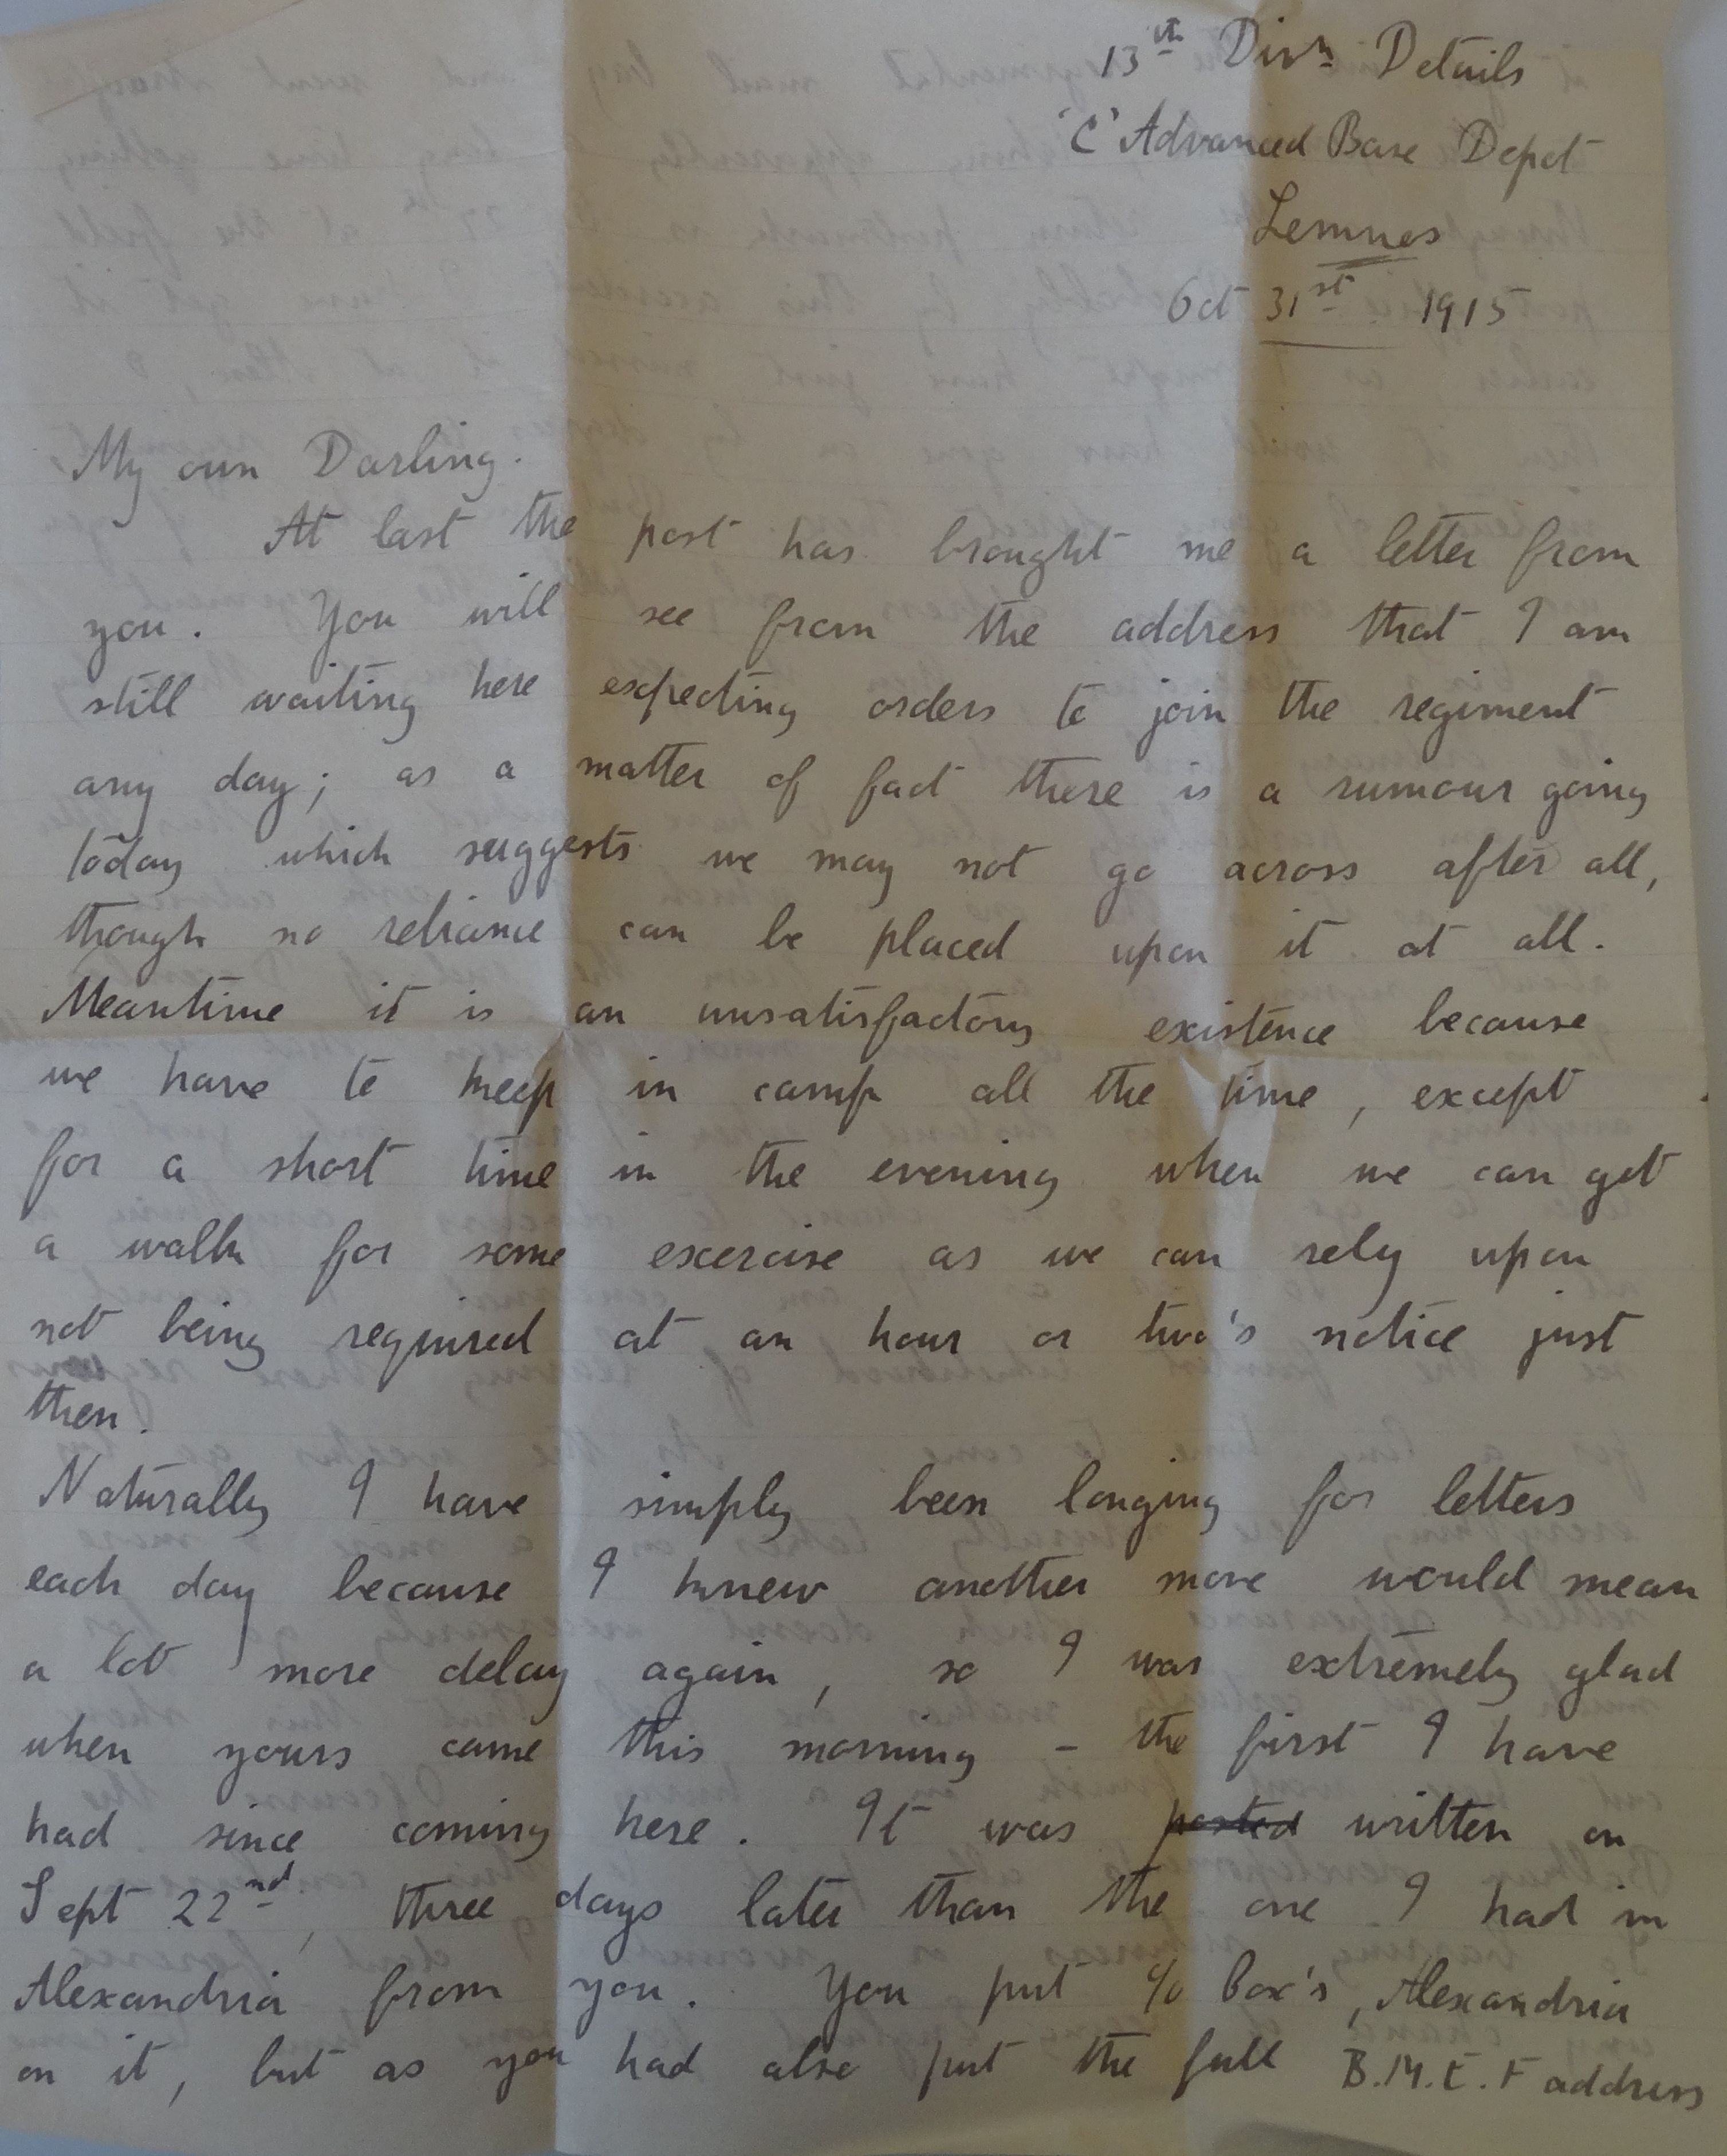 13th Divn Details
'C' Advanced Base Depot
Lemnos
Oct 31st 1915
My own Darling.
At last the post has brought me a letter from
you. You will see from the address that I am
still waiting here expecting orders to join the regiment
any day; as a matter of fact there is a rumour going
today which suggests we may not go across after all,
though no reliance can be placed upon it at all.
Meantime it is an unsatisfactory existence because
we have to keep in camp all the time, except
for a short time in the evening when we can get
a walk for some exercise as we can rely upon
not being required at an hour or two's notice just
then.
Naturally I have simply been longing for letters
each day because I knew another move would mean
a lot more delay again, so I was extremely glad
when yours came this morning - the first I have
had since coming here. It was posted written on
Sept 22nd, three days later than the one I had in
Alexandria from you. You put c/o Cox's, Alexandria
on it, but as you had also put the full B.M.E.F address